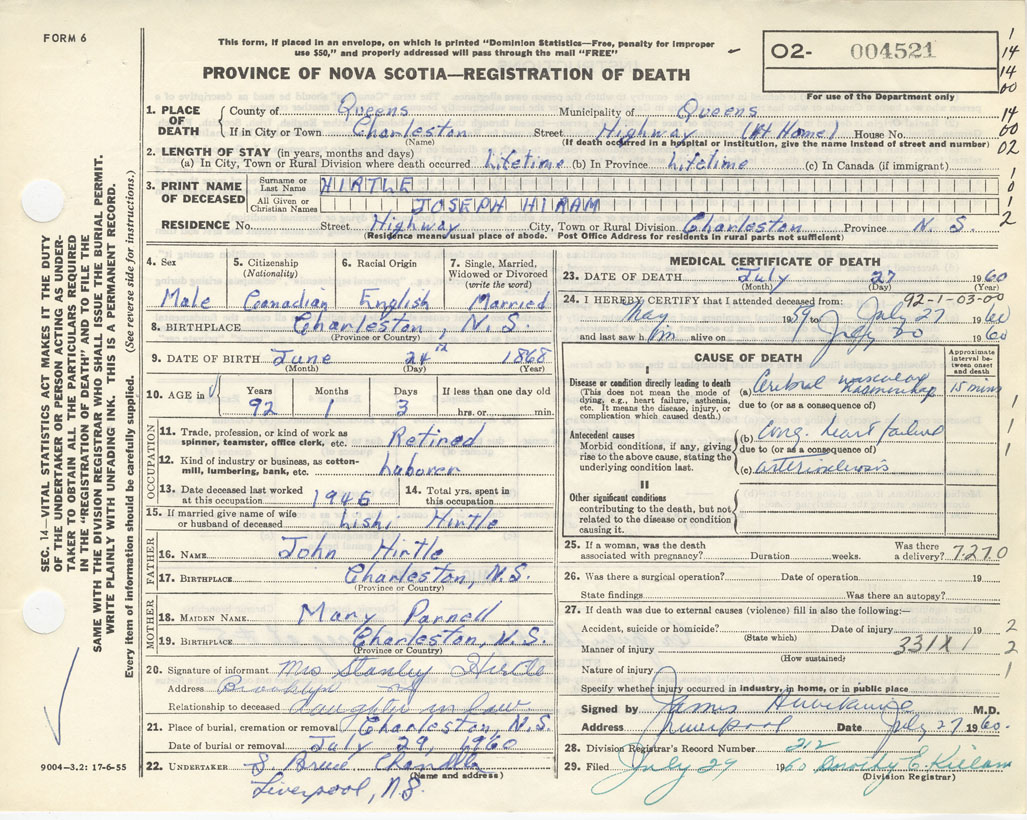 FORM 6
This form, if placed in an envelope, on which is printed "Dominion Statistics—Free, penalty for improper
use $50," and properly addressed will pass through the mail "FREE"
02- 004521
For use of the Department only
PROVINCE OF NOVA SCOTIA—REGISTRATION OF DEATH
1
14
14
00
14
00
02
1
0
1
2
1. PLACE OF DEATH
County of Queens Municipality of Queens
If in City or Town Charleston Street Highway (At Home) House No.
(Name) (If death occurred in a hospital or institution, give the name instead of street and number)
2. LENGTH OF STAY (in years, months and days)
(a) In City, Town or Rural Division where death occurred lifetime (b) In Province lifetime (c) In Canada (if immigrant)
3. PRINT NAME OF DECEASED
Surname or Last Name HIRTLE
All Given or Christian Names JOSEPH HIRAM
RESIDENCE No. Street Highway City, Town or Rural Division Charleston Province N. S.
(Residence means usual place of abode. Post Office Address for residents in rural parts not sufficient)
4. Sex
Male
5. Citizenship (Nationality)
Canadian
6. Racial Origin
English
7. Single, Married, Widowed or Divorced (write the word)
Married
8. BIRTHPLACE Charleston, N. S.
(Province or Country)
9. DATE OF BIRTH June 24th 1868
(Month) (Day) (Year)
10. AGE in
Years Months Days If less than one day old
92 1 3 hrs. or min.
OCCUPATION
11. Trade, profession, or kind of work as spinner, teamster, office clerk, etc. Retired
12. Kind of industry or business, as cotton-mill, lumbering, bank, etc. Laborer
13. Date deceased last worked at this occupation 1945
14. Total yrs. spent in this occupation
15. If married give name of wife or husband of deceased Hirtle
FATHER
16. NAME John Hirtle
17. BIRTHPLACE Charleston, N.S.
(Province or Country)
MOTHER
18. MAIDEN NAME Mary Parnell
19. BIRTHPLACE Charleston, N.S.
(Province or Country)
20. Signature of informant Mrs Stanley Hirtle
Address Brooklyn
Relationship to deceased daughter in law
21. Place of burial, cremation or removal Charleston N.S.
Date of burial or removal July 29, 1960
22. UNDERTAKER S. Bruce Chandler
(Name and address)
Liverpool, N.S.
MEDICAL CERTIFICATE OF DEATH
23. DATE OF DEATH July 27 1960
(Month) (Day) (Year)
24. I HEREBY CERTIFY that I attended deceased from: 92-1-03-00
May 1959 to July 27 1960
and last saw him alive on July 20 1960
CAUSE OF DEATH
Approximate interval between onset and death
I
Disease or condition directly leading to death
(This does not mean the mode of dying, e.g., heart failure, asthenia, etc. It means the disease, injury, or complication which caused death.)
(a) Cerebral vascular hemorrhage 15 mins
due to (or as a consequence of)
Antecedent causes
Morbid conditions, if any, giving rise to the above cause, stating the underlying condition last.
(b) Cong. heart failure
due to (or as a consequence of)
(c) arteriosclerosis
II
Other significant conditions
contributing to the death, but not related to the disease or condition causing it.
1
1
1
25. If a woman, was the death associated with pregnancy? Duration weeks. Was there a delivery? 7270
26. Was there a surgical operation? Date of operation 19
State findings Was there an autopsy?
27. If death was due to external causes (violence) fill in also the following:—
Accident, suicide or homicide? Date of injury 19 2
(State which)
Manner of injury 331X1 2
(How sustained)
Nature of injury 1
Specify whether injury occurred in industry, in home, or in public place
Signed by James M.D.
Address Liverpool Date July 27 1960.
28. Division Registrar's Record Number 212
29. Filed July 29 1960 Dorothy E. Killam
(Division Registrar)
SEC. 14—VITAL STATISTICS ACT MAKES IT THE DUTY
OF THE UNDERTAKER OR PERSON ACTING AS UNDER-
TAKER TO OBTAIN ALL THE PARTICULARS REQUIRED
IN THE "REGISTRATION OF DEATH" AND TO FILE THE
SAME WITH THE DIVISION REGISTRAR WHO SHALL ISSUE THE BURIAL PERMIT.
WRITE PLAINLY WITH UNFADING INK. THIS IS A PERMANENT RECORD.
Every item of information should be carefully supplied. (See reverse side for instructions.)
9004—3.2: 17-6-55